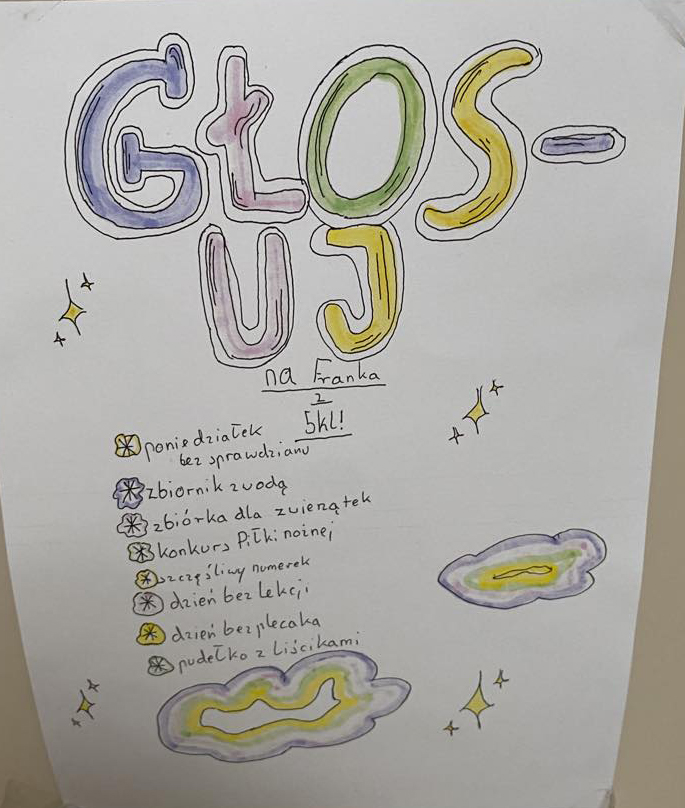 GŁOS-
UJ
na Franka
z
5kl!
poniedziałek
bez sprawdzianu
zbiornik z wodą
zbiórka dla zwierzątek
konkurs Piłki nożnej
szczęśliwy numerek
dzień bez lekcji
dzień bez plecaka
pudełko z liścikami